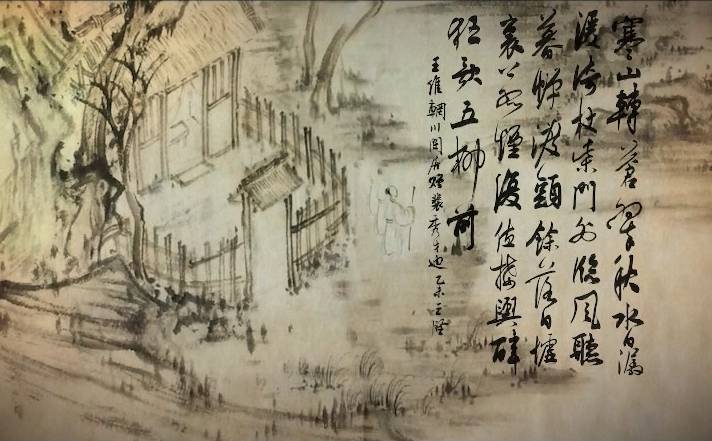 寒山轉蒼翠秋水日潺
湲倚杖柴門外臨風聽
暮蟬渡頭餘落日墟
裏上孤煙復值接輿醉
狂歌五柳前
王維輞川閑居贈裴秀才迪乙未